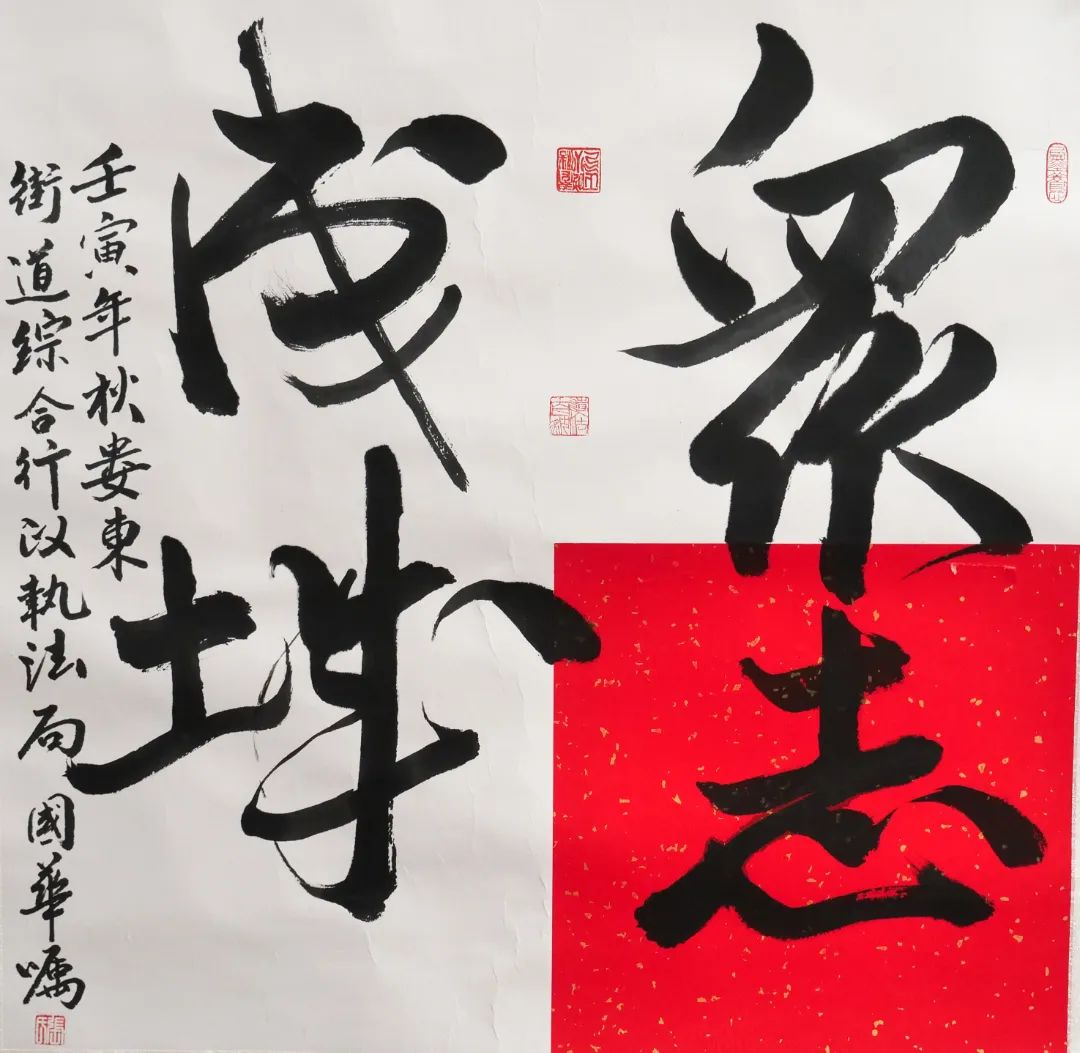 眾志
成城
壬寅年秋娄東
街道綜合行政執法局國華嘱